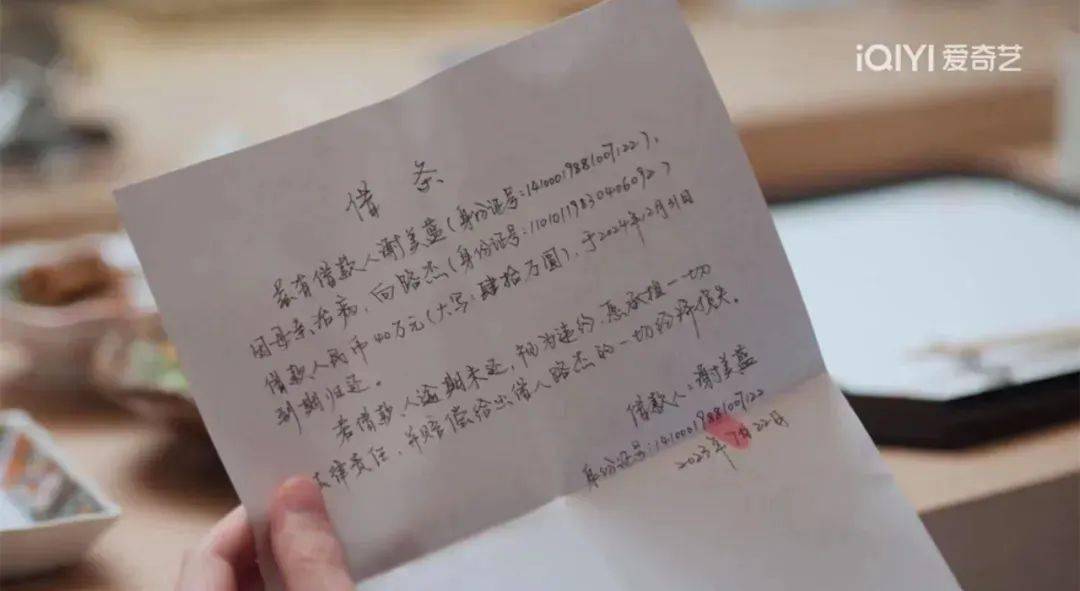 iQIYI 爱奇艺
借 条
兹有借款人谢美蓝(身份证号:14100019881007122),
因母亲治病,向路杰(身份证号:110101198304060927)
借款人民币40万元(大写:肆拾万圆),于2024年12月31日
到期归还。
若借款人逾期未还,视为违约,愿承担一切
法律责任,并赔偿给出借人路杰的一切经济损失。
借款人:谢美蓝
身份证号:14100019881007122
2023年7月22日